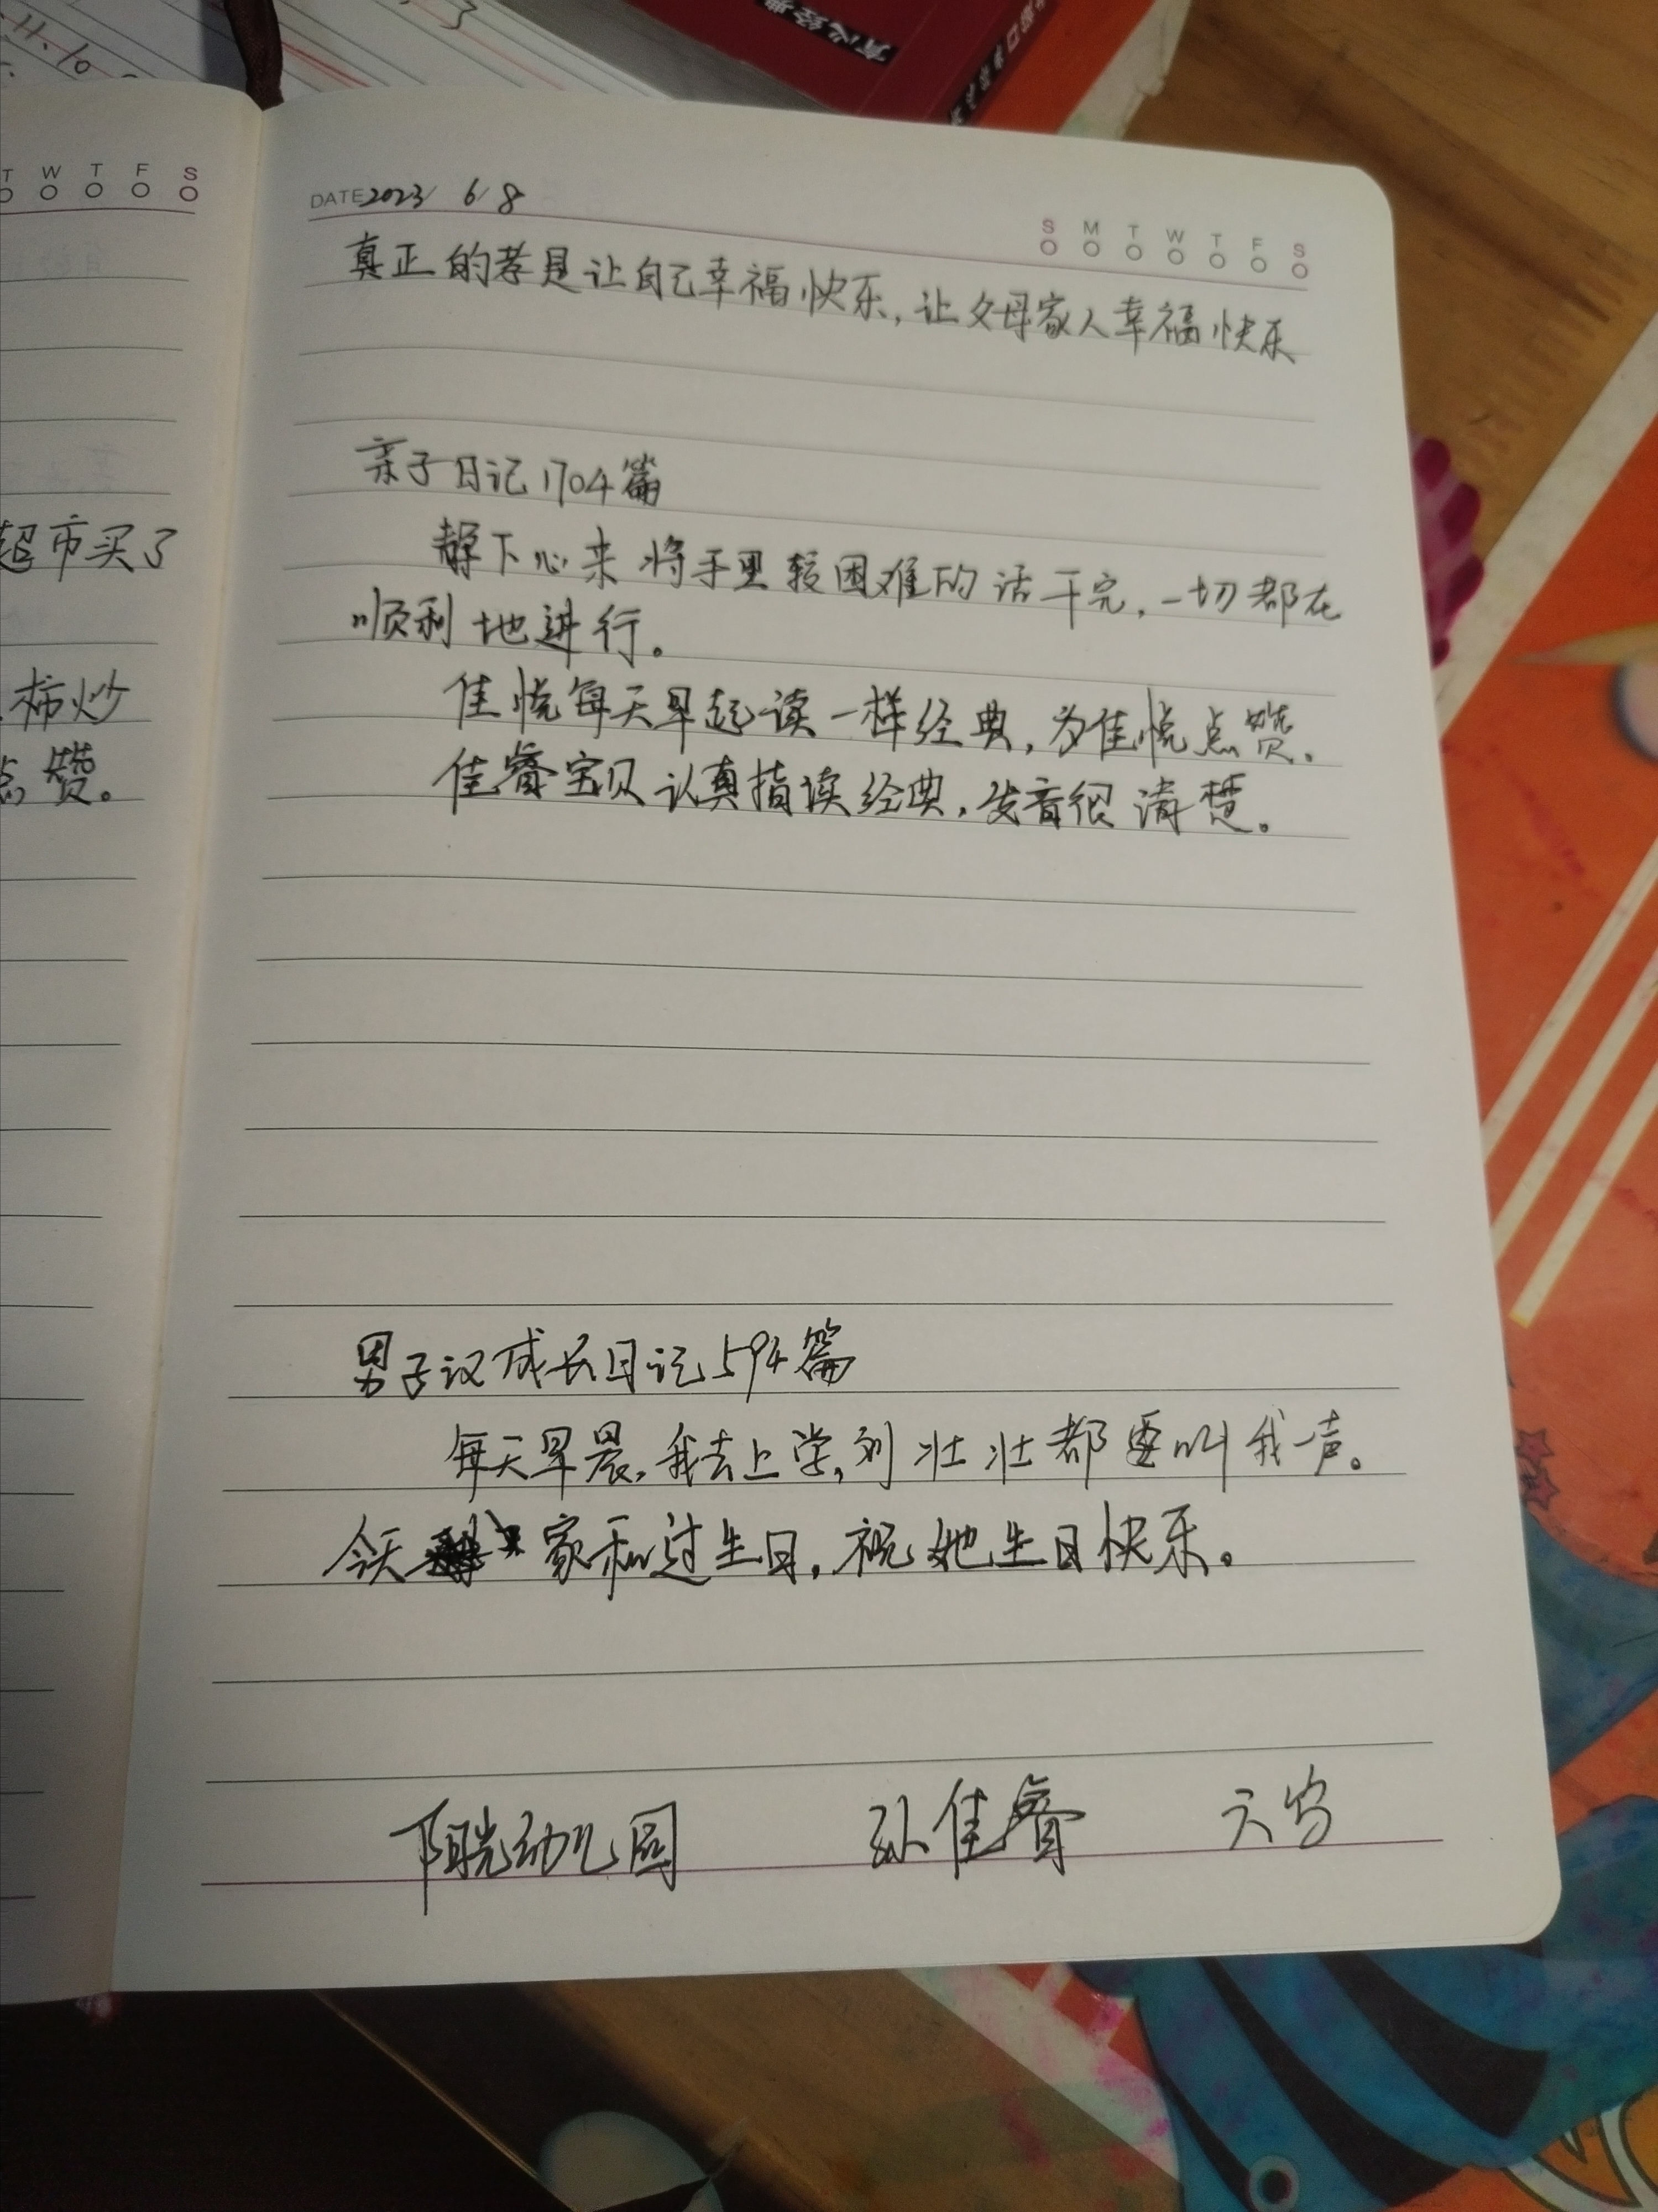 超市买了
柿炒
点赞。
S M T W T F S
DATE 2023/ 6/ 8
真正的孝是让自己幸福快乐,让父母家人幸福快乐
亲子日记1704篇
静下心来将手里较困难的话干完,一切都在
顺利地进行。
佳悦每天早起读一样经典,为佳悦点赞。
佳睿宝贝认真指读经典,发音很清楚。
男子汉成长日记594篇
每天早晨,我去上学,刘壮壮都要叫我一声。
今天家和过生日,祝她生日快乐。
阳光幼儿园 孙佳睿 六岁
T W T F S